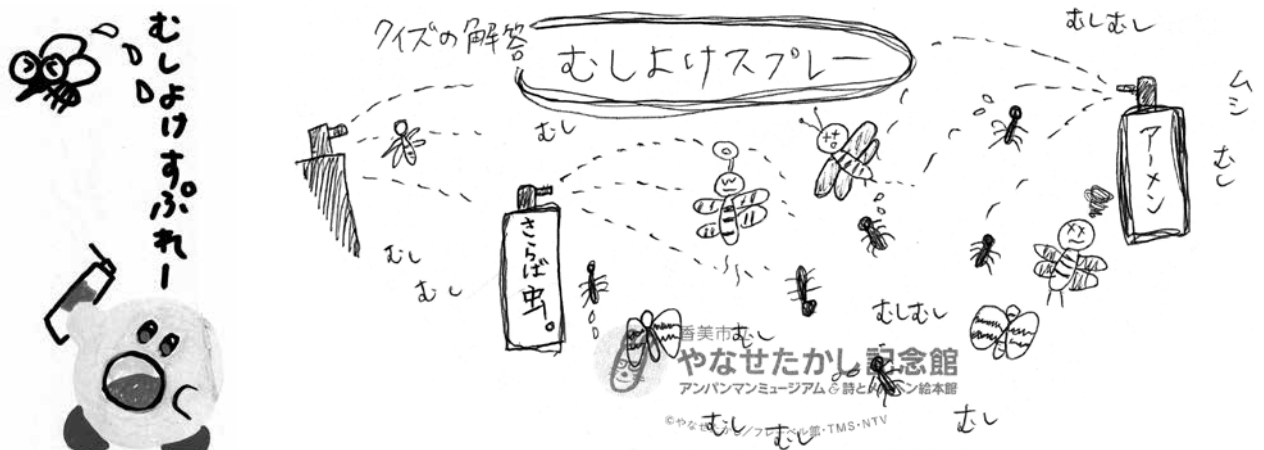 むしよけすぷれー
クイズの解答
むしよけスプレー
むしむし
ムシ
むし
アーメン
むし
さらば虫。
むし
むし
むしむし
むし
香美市
やなせたかし記念館
アンパンマンミュージアム&詩とメルヘン絵本館
©やなせたかし/フレーベル館・TMS・NTV
むし
むし
むし